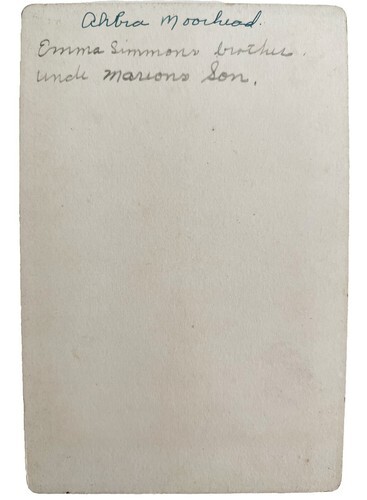 Ahbra Moorhead.
Emma Simmons brother.
Uncle Marions Son.